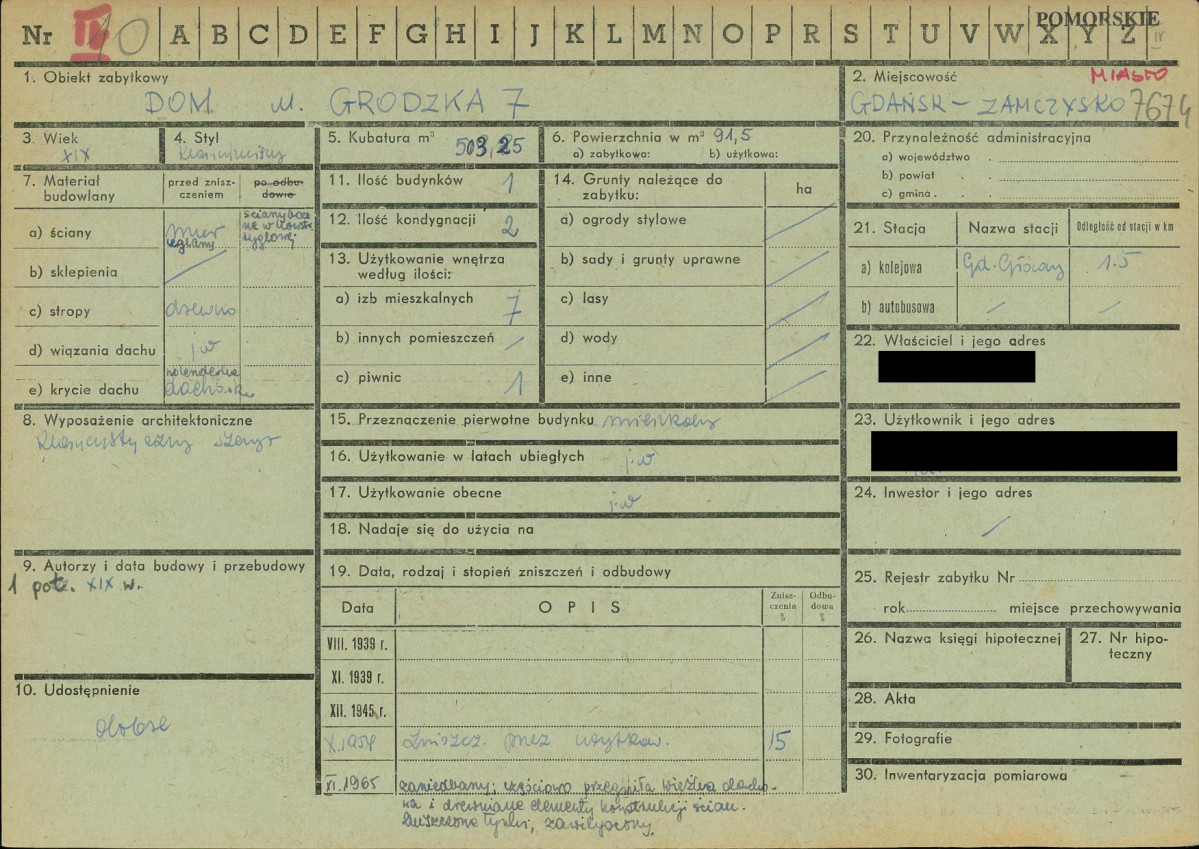 POMORSKIE
Nr II 10 A B C D E F G H I J K L M N O P R S T U V W X Y Z IV
1. Obiekt zabytkowy
DOM ul. GRODZKA 7
2. Miejscowość MIASTO
GDAŃSK – ZAMCZYSKO 7674
3. Wiek
XIX
4. Styl
klasycystyczny
5. Kubatura m³ 503,25
6. Powierzchnia w m² 91,5
a) zabytkowa: b) użytkowa:
7. Materiał budowlany
przed zniszczeniem
po odbudowie
a) ściany mur ceglany
ściany boczne w konstr. ryglowej
b) sklepienia /
c) stropy drewno
d) wiązania dachu j.w
e) krycie dachu holenderka dachówka
8. Wyposażenie architektoniczne
klasycystyczny szczyt
9. Autorzy i data budowy i przebudowy
1 poł. XIX w.
10. Udostępnienie
dobre
11. Ilość budynków 1
12. Ilość kondygnacji 2
13. Użytkowanie wnętrza
według ilości:
a) izb mieszkalnych 7
b) innych pomieszczeń /
c) piwnic 1
14. Grunty należące do
zabytku: ha
a) ogrody stylowe /
b) sady i grunty uprawne /
c) lasy /
d) wody /
e) inne /
15. Przeznaczenie pierwotne budynku mieszkalny
16. Użytkowanie w latach ubiegłych j.w
17. Użytkowanie obecne j.w
18. Nadaje się do użycia na
19. Data, rodzaj i stopień zniszczeń i odbudowy
Data OPIS Zniszczenia % Odbudowa %
VIII. 1939 r.
XI. 1939 r.
XII. 1945 r.
X.1959 zniszcz. przez użytkow. 15
XI.1965 zaniedbany; częściowo przegniła więźba dacho-
wa i drewniane elementy konstrukcji ścian.
Zniszczone tynki, zawilgocony.
20. Przynależność administracyjna
a) województwo
b) powiat
c) gmina
21. Stacja Nazwa stacji Odległość od stacji w km
a) kolejowa Gd. Główny 1.5
b) autobusowa / /
22. Właściciel i jego adres
23. Użytkownik i jego adres
24. Inwestor i jego adres
/
25. Rejestr zabytku Nr
rok miejsce przechowywania
26. Nazwa księgi hipotecznej
27. Nr hipo-
teczny
28. Akta
29. Fotografie
30. Inwentaryzacja pomiarowa